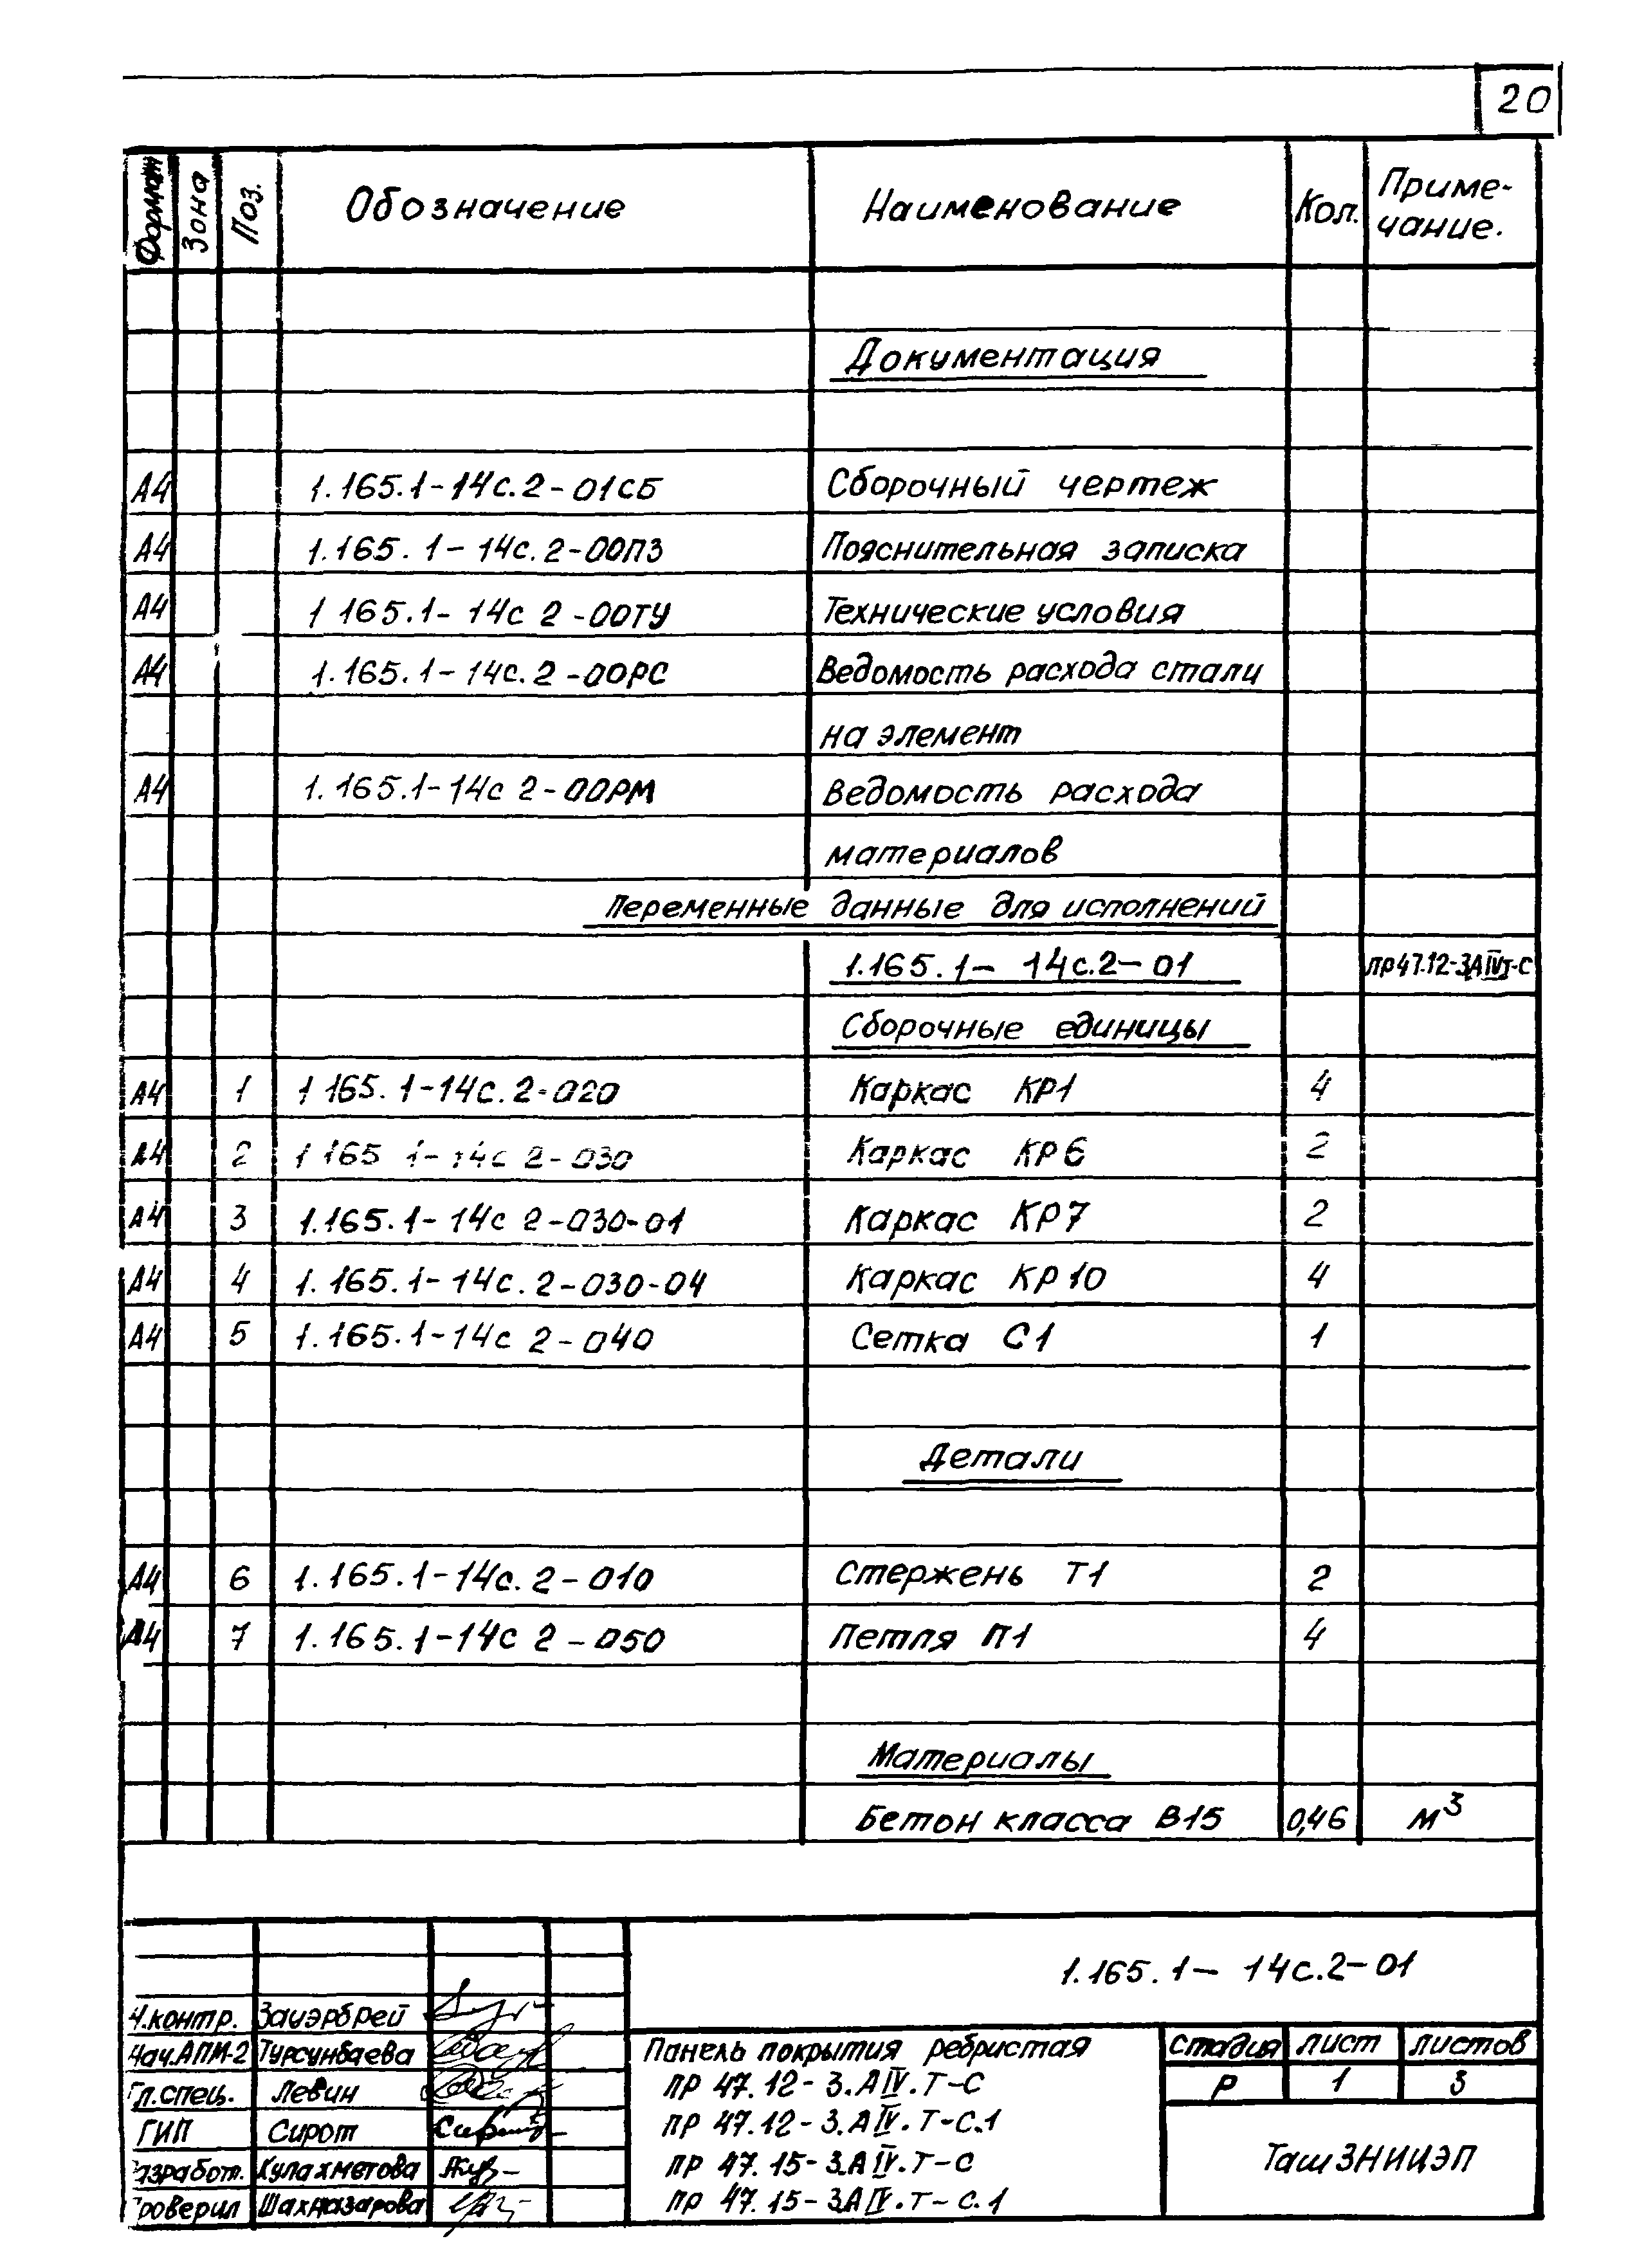 20
Формат Зона Поз. Обозначение Наименование Кол. Приме-
чание.
Документация
А4 1.165.1-14с.2-01СБ Сборочный чертеж
А4 1.165.1-14с.2-00ПЗ Пояснительная записка
А4 1 165.1-14с 2-00ТУ Технические условия
А4 1.165.1-14с.2-00РС Ведомость расхода стали
на элемент
А4 1.165.1-14с 2-00РМ Ведомость расхода
материалов
Переменные данные для исполнений
1.165.1-14с.2-01 ПР47.12-3АIVТ-С
Сборочные единицы
А4 1 1 165.1-14с.2-020 Каркас КР1 4
А4 2 1 165 1-14с 2-030 Каркас КР6 2
А4 3 1.165.1-14с 2-030-01 Каркас КР7 2
А4 4 1.165.1-14с.2-030-04 Каркас КР10 4
А4 5 1.165.1-14с 2-040 Сетка С1 1
Детали
А4 6 1.165.1-14с.2-010 Стержень Т1 2
А4 7 1.165.1-14с 2-050 Петля П1 4
Материалы
Бетон класса В15 0,46 м³
1.165.1-14с.2-01
Н.контр. Зауэрбрей
Нач.АПМ-2 Турсунбаева
Гл.спец. Левин
ГИП Сирот
Разработ. Кулахметова
Проверил Шахназарова
Панель покрытия ребристая
ПР 47.12-3.АIV.Т-С
ПР 47.12-3.АIV.Т-С.1
ПР 47.15-3.АIV.Т-С
ПР 47.15-3АIV.Т-С.1
стадия лист листов
Р 1 3
ТашЗНИИЭП